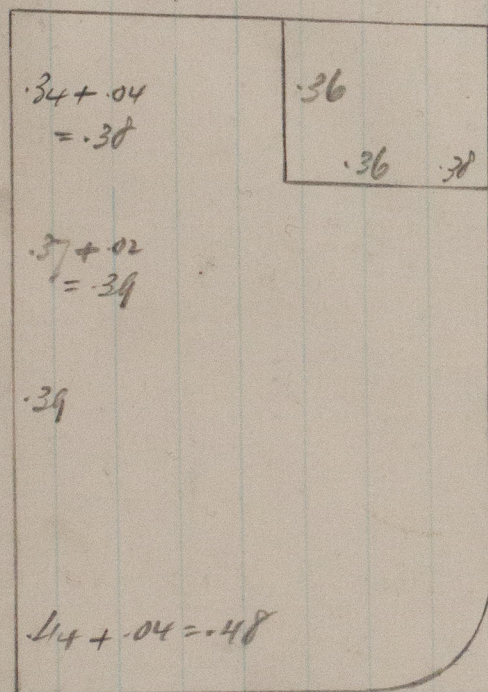 .34 + .04
= .38
.36
.36 .38
.37 + .02
= .39
.39
.44 + .04 = .48